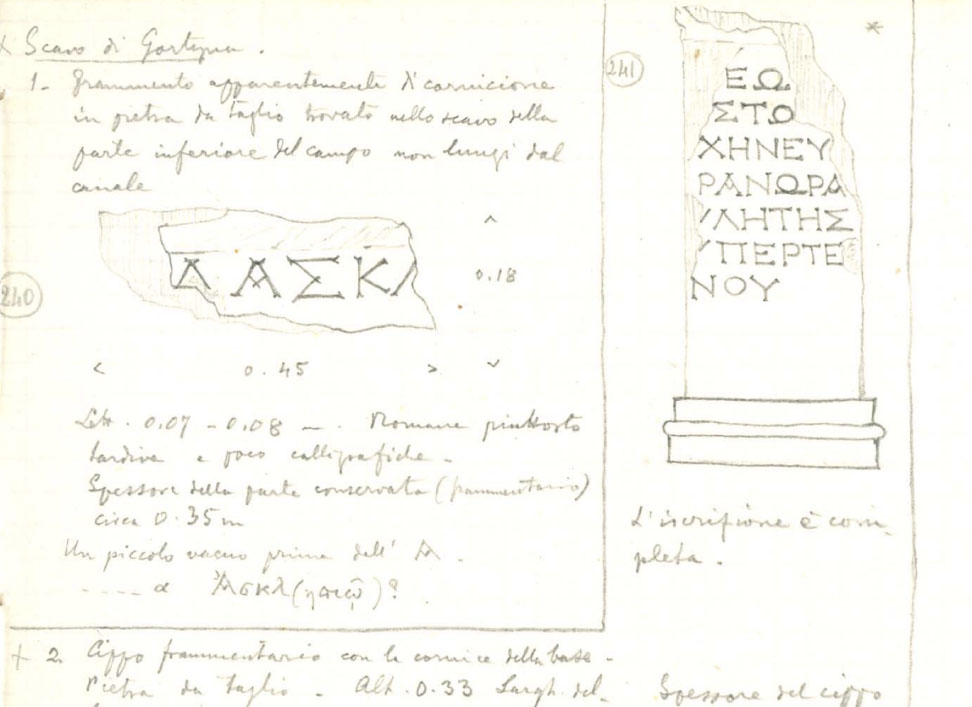 + Scavo di Gortyna.
1- Frammento apparentemente di cornicione
in pietra da taglio trovato nello scavo della
parte inferiore del campo non lungi dal
canale
240
Α ΑΣΚΛ
0.18
0.45
Lett. 0.07 - 0.08 -. Romane piuttosto
tardive e poco calligrafiche -
Spessore della parte conservata (frammentario)
circa 0.35 m
Un piccolo vacuo prima dell' Α.
---- α Ἀσκλ(ηπιῷ)?
+ 2. Cippo frammentario con la cornice della base -
Pietra da taglio - Alt. 0.33 Largh. del-
241
*
ΕΩ
ΣΤΩ
ΧΗΝΕΥ
ΡΑΝΩΡΑ
ΛΗΤΗΣ
ΥΠΕΡΤΕ
ΝΟΥ
L'iscrizione è com-
pleta.
Spessore del cippo